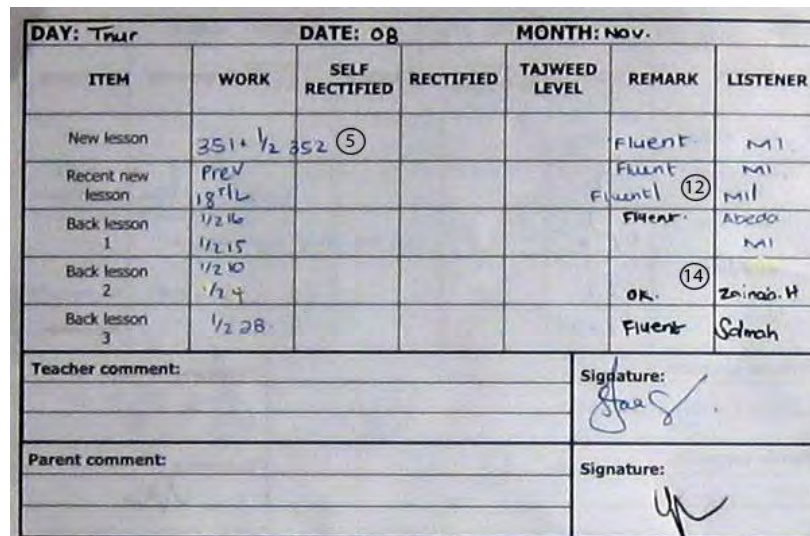 DAY: Thur DATE: 08 MONTH: Nov.
ITEM WORK SELF RECTIFIED RECTIFIED TAJWEED LEVEL REMARK LISTENER
New lesson 351+ 1/2 352 5 Fluent. M1
Recent new lesson Prev Fluent M1
Fluent 12 M1
Back lesson 1 1/2 16 Fluent. Abeda
1/2 15 M1
Back lesson 2 1/2 10 14
1/2 4 OK. Zainab.H
Back lesson 3 1/2 28 Fluent Salmah
Teacher comment: Signature:
Parent comment: Signature: